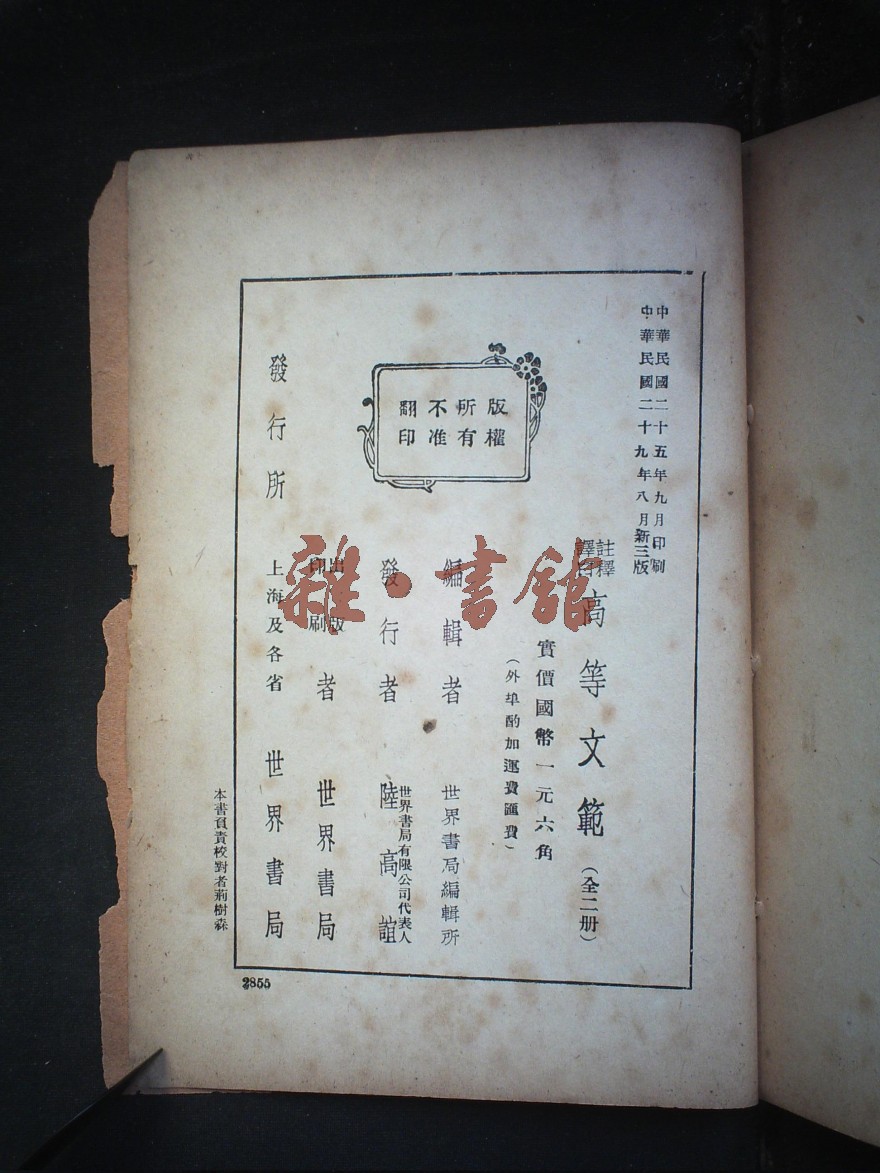 中華民國二十五年九月印刷
中華民國二十九年八月新三版
註釋
譯白
高等文範（全二册）
實價國幣一元六角
（外埠酌加運費匯費）
版權所有不准翻印
編輯者 世界書局編輯所
發行者 世界書局有限公司代表人 陸高誼
出版
印刷
者 世界書局
發行所 上海及各省 世界書局
本書負責校對者荊樹森
2855
雜·書館